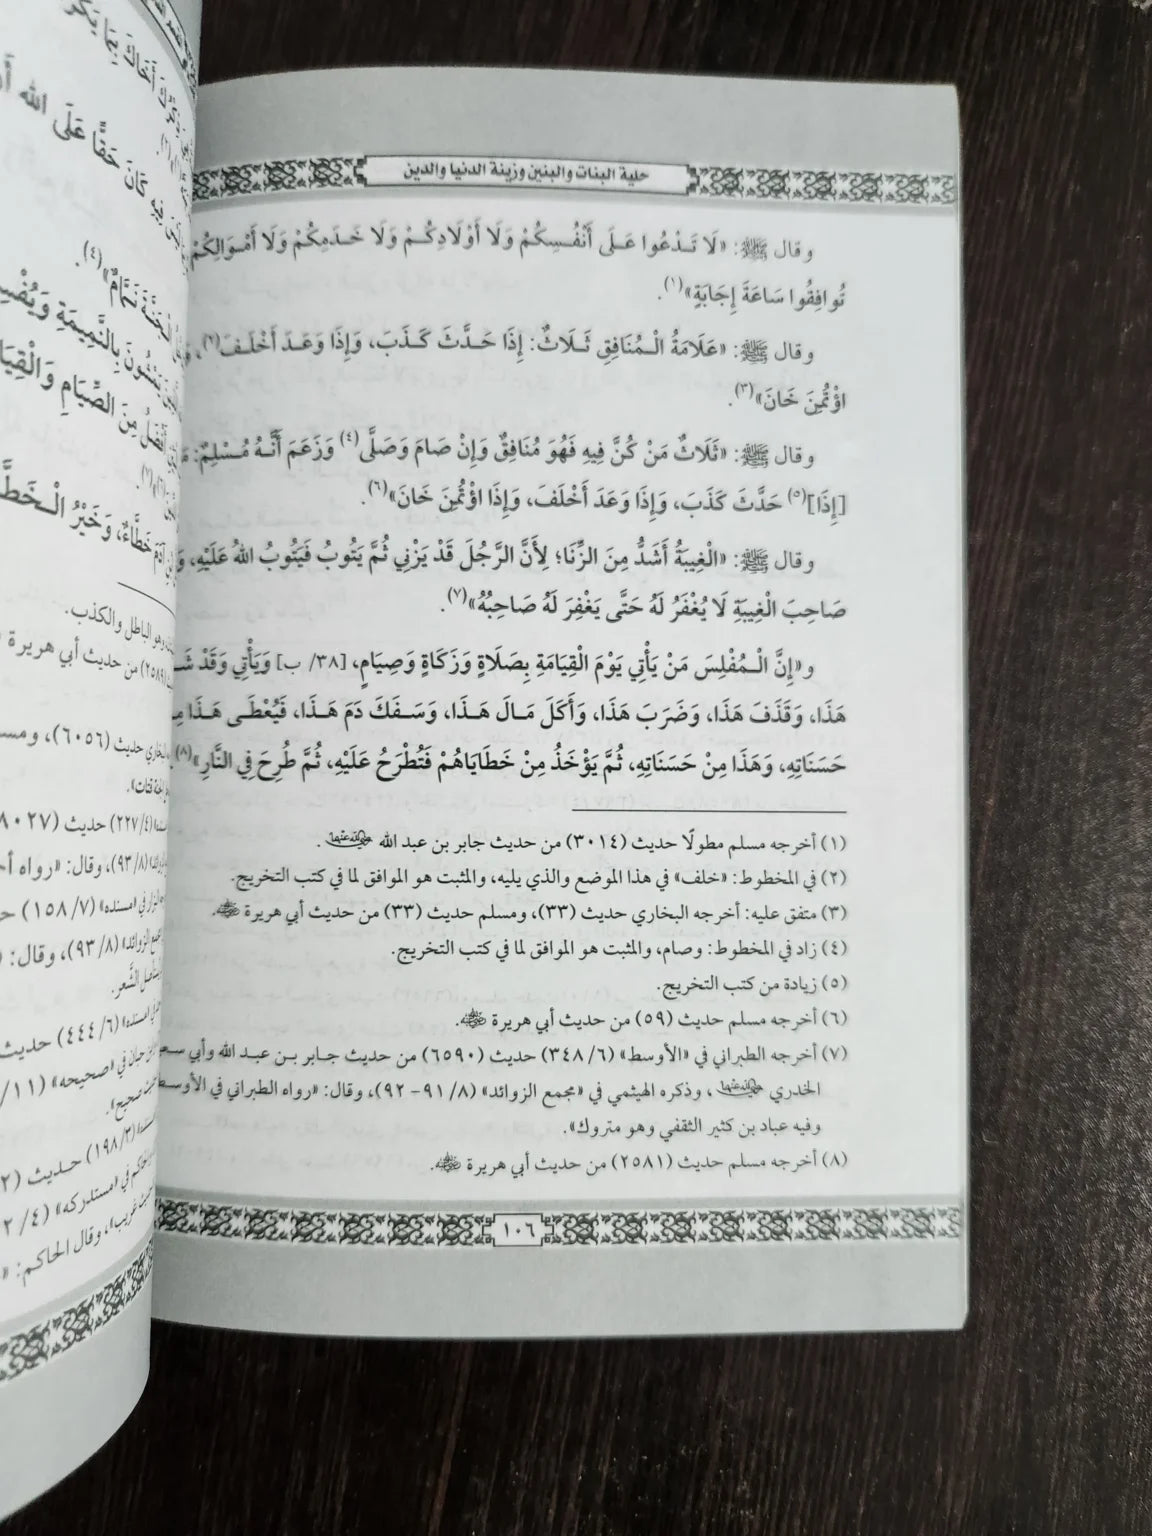 حلية البنات والبنين وزينة الدنيا والدين
وقال ﷺ: «لَا تَدْعُوا عَلَى أَنْفُسِكُمْ وَلَا أَوْلَادِكُمْ وَلَا خَدَمِكُمْ وَلَا أَمْوَالِكُمْ
تُوافِقُوا سَاعَةَ إِجَابَةٍ»(١).
وقال ﷺ: «عَلَامَةُ الْمُنَافِقِ ثَلَاثٌ: إِذَا حَدَّثَ كَذَبَ، وَإِذَا وَعَدَ أَخْلَفَ(٢)،
اؤْتُمِنَ خَانَ»(٣).
وقال ﷺ: «ثَلَاثٌ مَنْ كُنَّ فِيهِ فَهُوَ مُنَافِقٌ وَإِنْ صَامَ وَصَلَّى(٤) وَزَعَمَ أَنَّهُ مُسْلِمٌ:
[إِذَا](٥) حَدَّثَ كَذَبَ، وَإِذَا وَعَدَ أَخْلَفَ، وَإِذَا اؤْتُمِنَ خَانَ»(٦).
وقال ﷺ: «الْغِيبَةُ أَشَدُّ مِنَ الزِّنَا؛ لِأَنَّ الرَّجُلَ قَدْ يَزْنِي ثُمَّ يَتُوبُ فَيَتُوبُ اللهُ عَلَيْهِ،
صَاحِبَ الْغِيبَةِ لَا يُغْفَرُ لَهُ حَتَّى يَغْفِرَ لَهُ صَاحِبُهُ»(٧).
و«إِنَّ الْمُفْلِسَ مَنْ يَأْتِي يَوْمَ الْقِيَامَةِ بِصَلَاةٍ وَزَكَاةٍ وَصِيَامٍ، [٣٨/ ب] وَيَأْتِي وَقَدْ
هَذَا، وَقَذَفَ هَذَا، وَضَرَبَ هَذَا، وَأَكَلَ مَالَ هَذَا، وَسَفَكَ دَمَ هَذَا، فَيُعْطَى هَذَا
حَسَنَاتِهِ، وَهَذَا مِنْ حَسَنَاتِهِ، ثُمَّ يَؤْخَذُ مِنْ خَطَايَاهُمْ فَتُطْرَحُ عَلَيْهِ، ثُمَّ طُرِحَ فِي النَّارِ»(٨)
(١) أخرجه مسلم مطولًا حديث (٣٠١٤) من حديث جابر بن عبد الله رضي الله عنهما.
(٢) في المخطوط: «خلف» في هذا الموضع والذي يليه، والمثبت هو الموافق لما في كتب التخريج.
(٣) متفق عليه: أخرجه البخاري حديث (٣٣)، ومسلم حديث (٣٣) من حديث أبي هريرة رضي الله عنه.
(٤) زاد في المخطوط: وصام، والمثبت هو الموافق لما في كتب التخريج.
(٥) زيادة من كتب التخريج.
(٦) أخرجه مسلم حديث (٥٩) من حديث أبي هريرة رضي الله عنه.
(٧) أخرجه الطبراني في «الأوسط» (٦/ ٣٤٨) حديث (٦٥٩٠) من حديث جابر بن عبد الله وأبي
الخدري رضي الله عنهما، وذكره الهيثمي في «مجمع الزوائد» (٨/ ٩١- ٩٢)، وقال: «رواه الطبراني في
وفيه عباد بن كثير الثقفي وهو متروك».
(٨) أخرجه مسلم حديث (٢٥٨١) من حديث أبي هريرة رضي الله عنه.
١٠٦
حَقًّا عَلَى الله
بِالنَّمِيمَةِ
مِنَ الصِّيَامِ
خَطَّاءٌ، وَخَيْرُ
وهو الباطل والكذب.
(٢٥٨٩) من حديث أبي هريرة
حديث (٦٠٥٦)،
(٤/ ٢٢٧) حديث
(٨/ ٩٣)، وقال: «رواه
«مسنده» (٧/ ١٥٨)
(٨/ ٩٣)، وقال:
الشَّعر.
(٦/ ٤٤٤) حديث
«صحيحه»
(٣/ ١٩٨) حديث
«مستدركه»
وقال الحاكم: